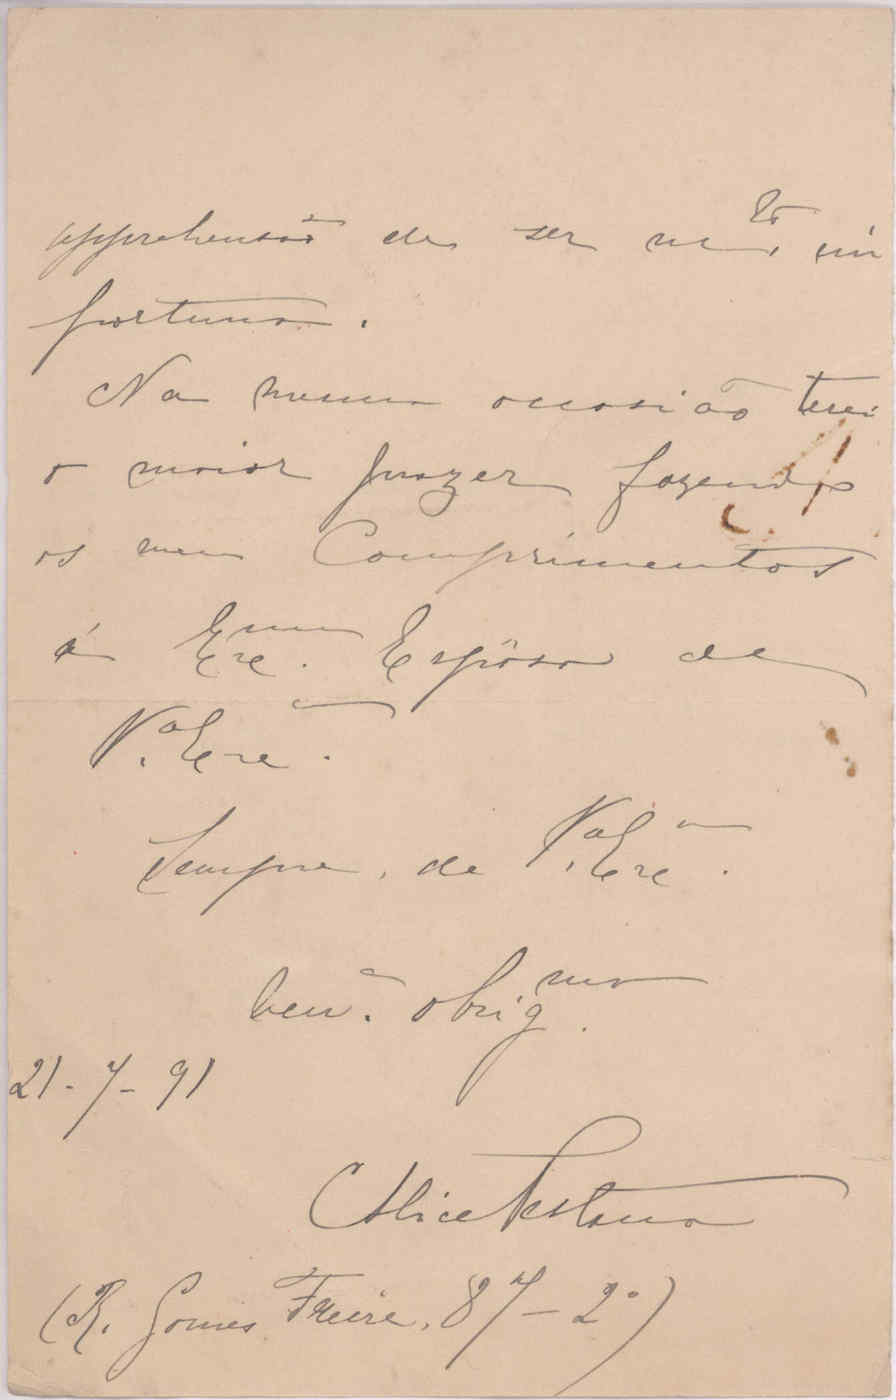 apprehensão de ser m.to im
portuna.
Na mesma occasião terei
o maior prazer fazendo
os meus Comprimentos
á Exma. Esposa de
V.a Exa.
Sempre, de V.a Exa.
ven.a obrigma.
21-7-91
Alice Pestana
(R. Gomes Freire, 87-2º)